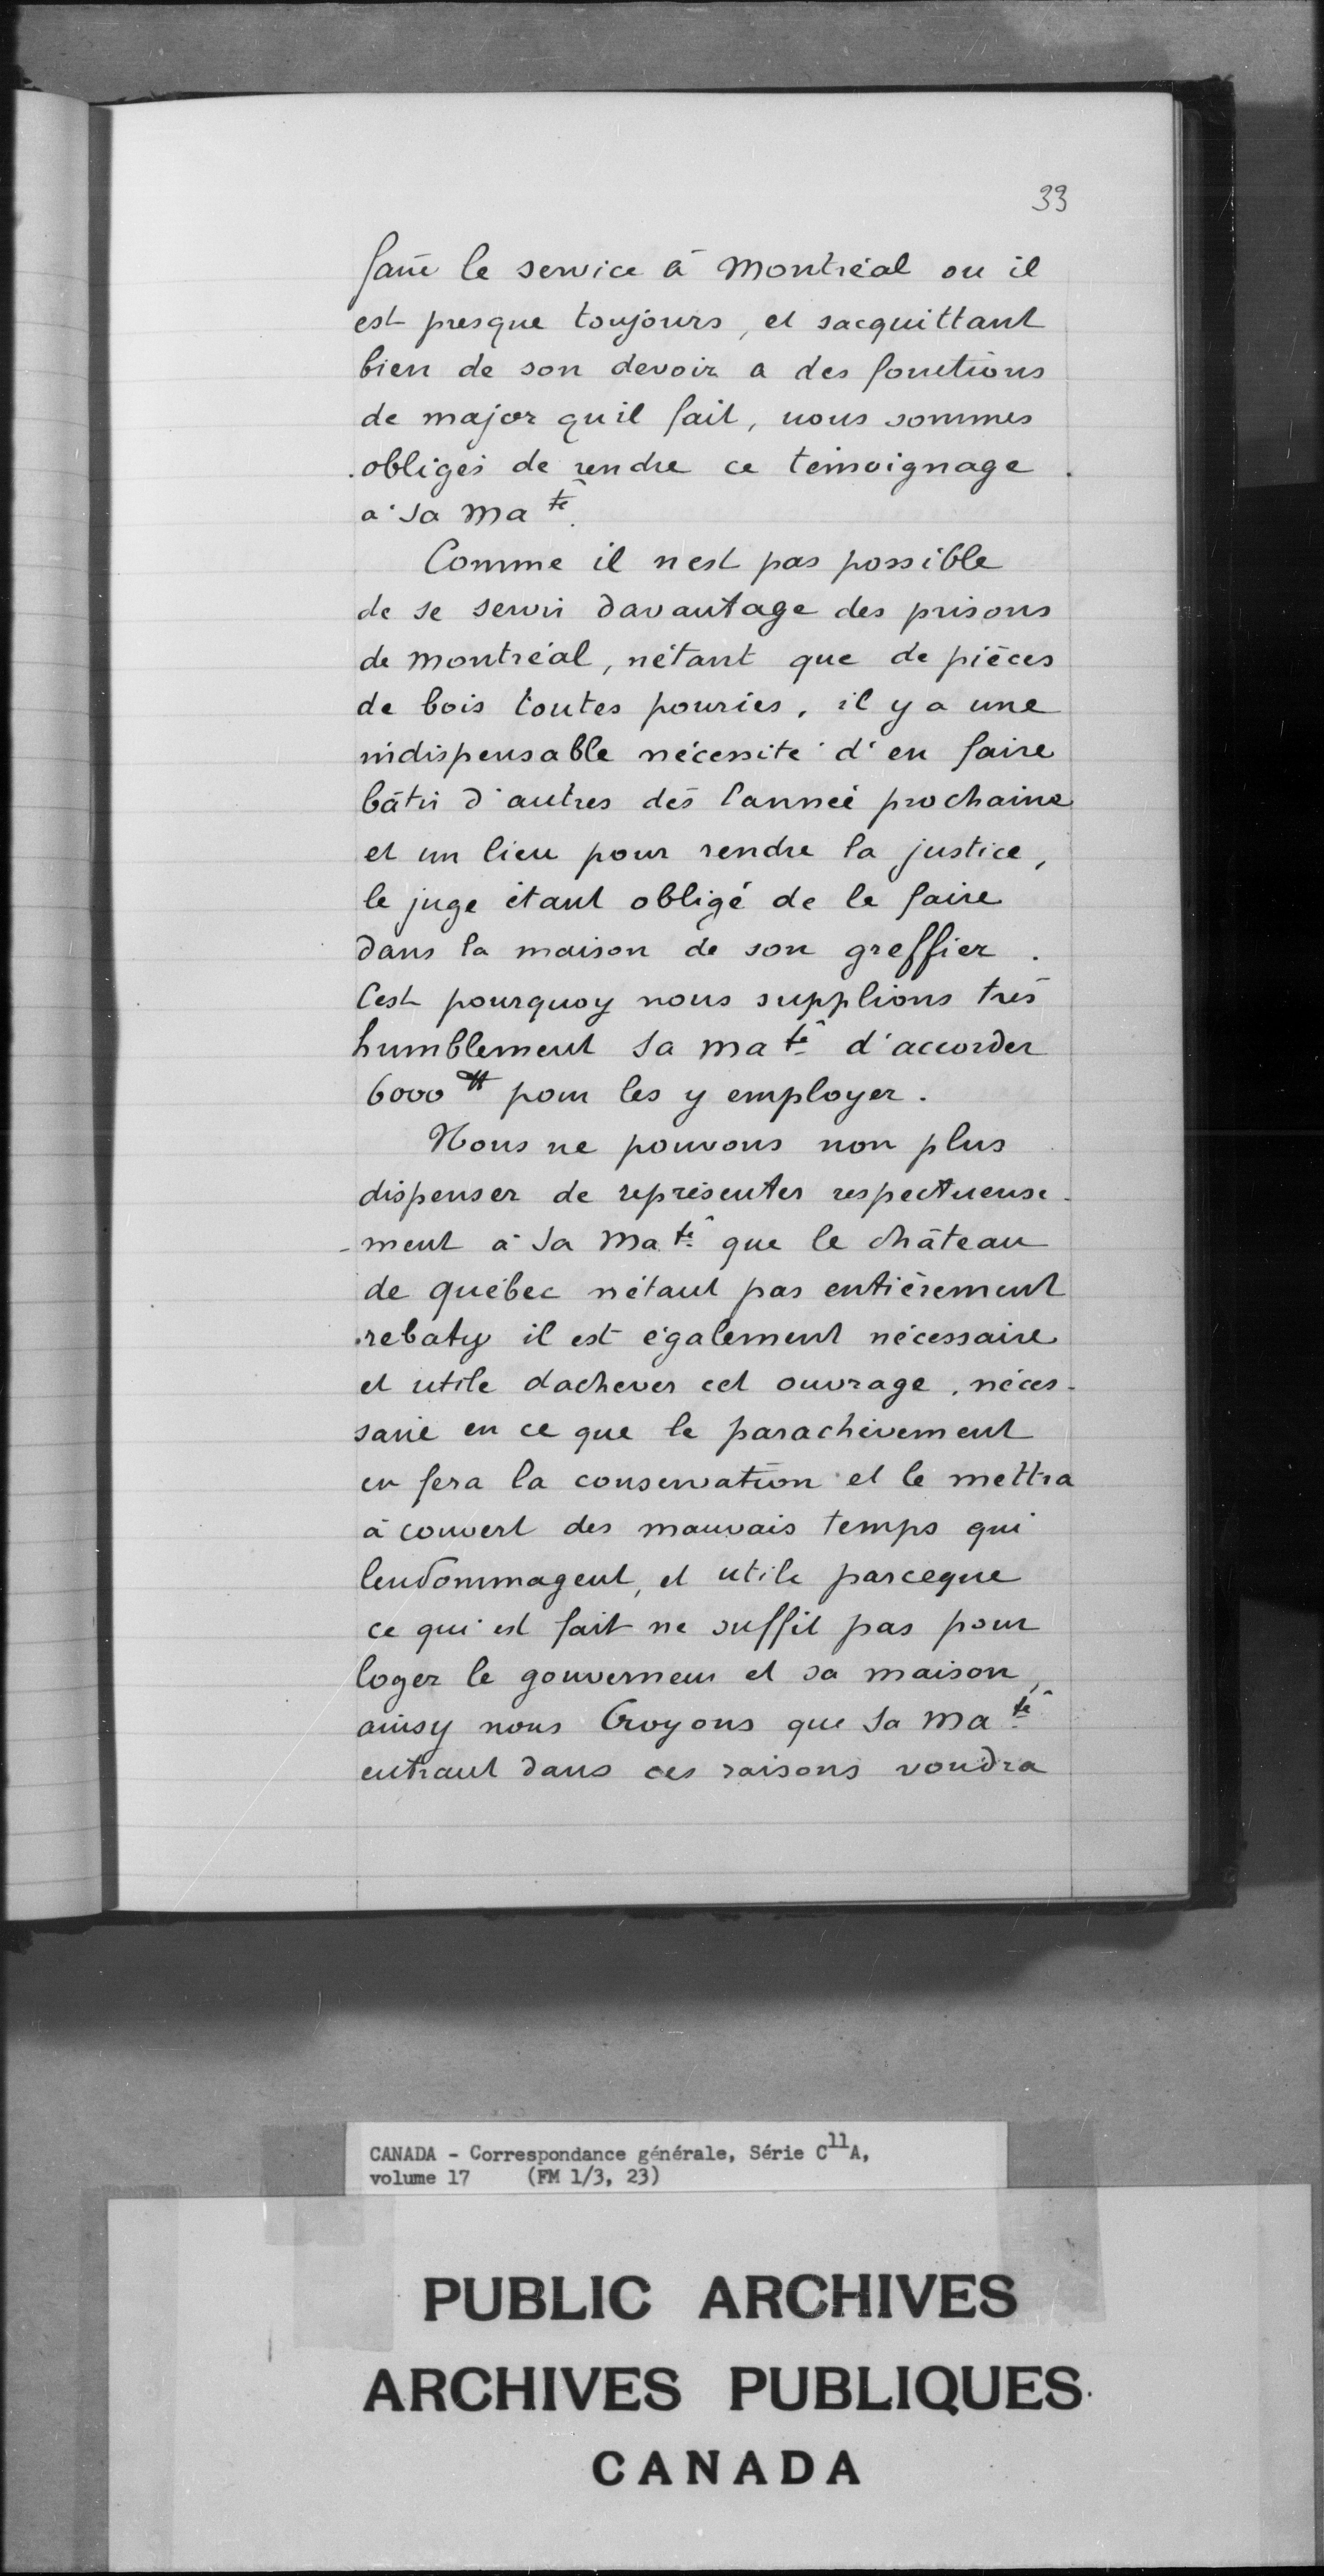 33
faire le service à Montréal ou il
est presque toujours, et sacquittant
bien de son devoir a des fonctions
de major quil fait, nous sommes
obligés de rendre ce témoignage
a sa Ma té.
Comme il nest pas possible
de se servir davantage des prisons
de Montréal, nétant que de pièces
de bois toutes pouries, il y a une
indispensable nécessité d'en faire
bâtir d'autres dès lannée prochaine
et un lieu pour rendre la justice,
le juge étant obligé de le faire
dans la maison de son greffier.
Cest pourquoy nous supplions très
humblement sa Ma té d'accorder
6000 ₶ pour les y employer.
Nous ne pouvons non plus
dispenser de représenter respectueuse-
-ment à sa Ma té que le château
de québec nétant pas entièrement
rebaty il est également nécessaire
et utile dachever cet ouvrage, néces-
saire en ce que le parachèvement
en fera la conservation et le mettra
à couvert des mauvais temps qui
lendommagent, et utile parceque
ce qui est fait ne suffit pas pour
loger le gouverneur et sa maison,
ainsy nous Croyons que sa Ma té
entrant dans ces raisons voudra
CANADA - Correspondance générale, Série C11A,
volume 17 (FM 1/3, 23)
PUBLIC ARCHIVES
ARCHIVES PUBLIQUES
CANADA